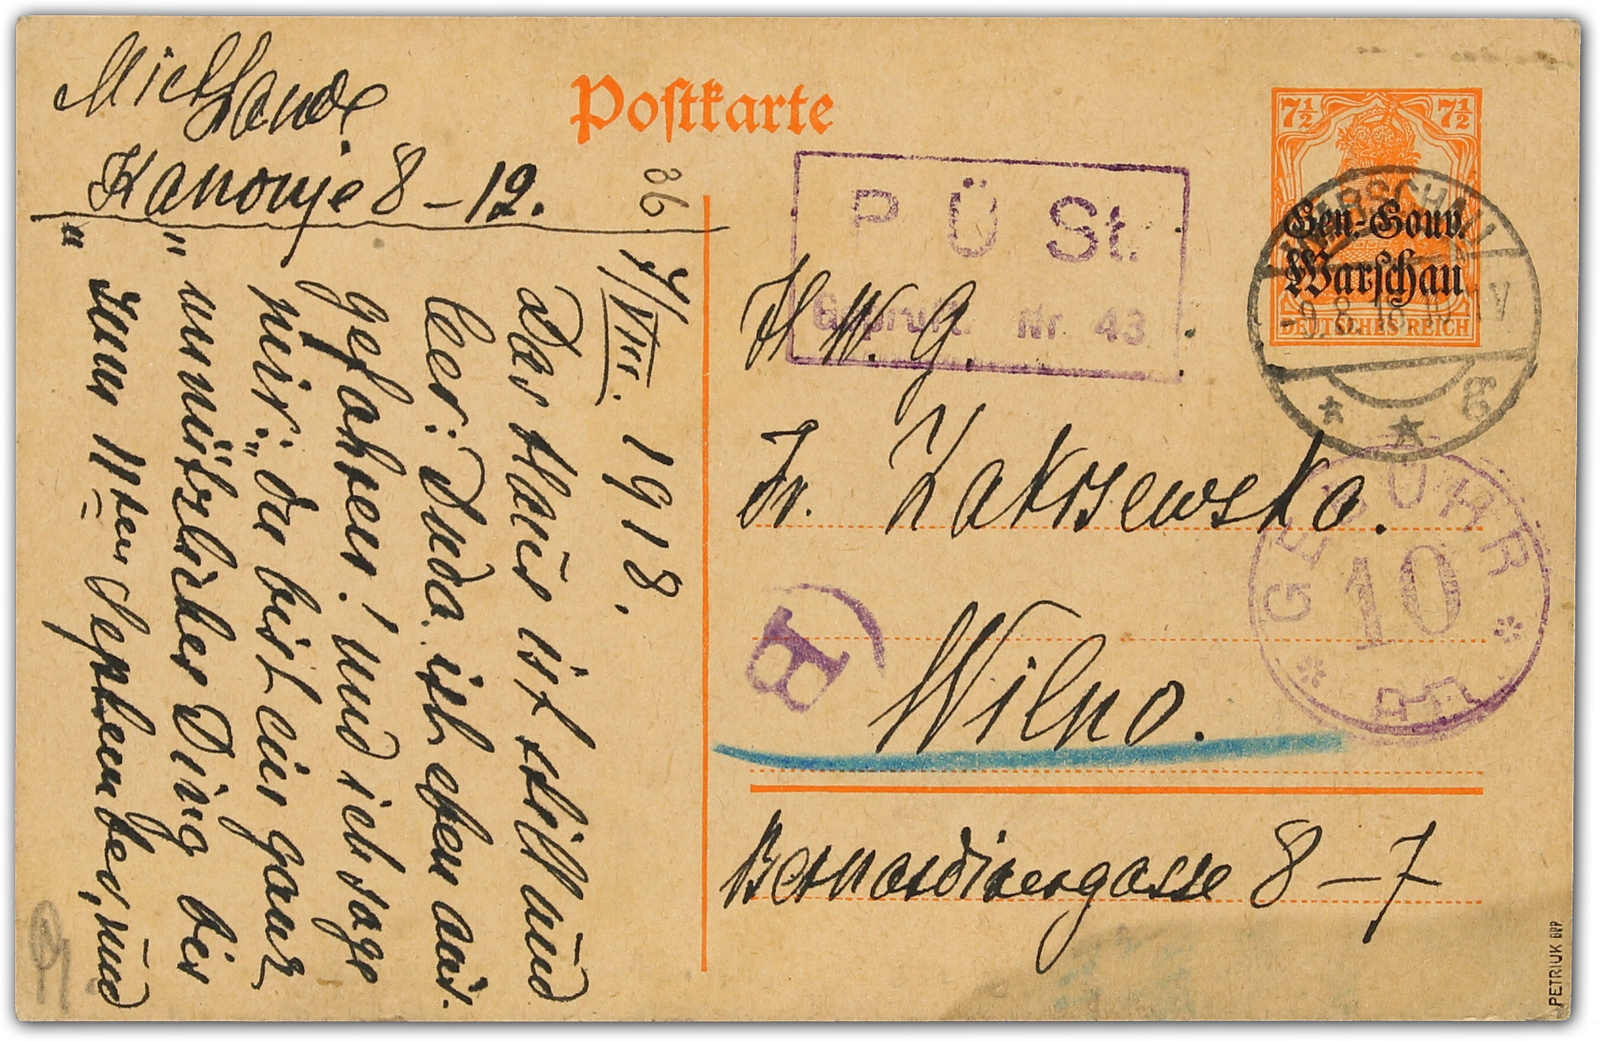 Postkarte
7½ 7½
Gen.-Gouv.
Warschau
DEUTSCHES REICH
WARSCHAU
-9.8.18. 10-11 V
P Ü St.
Geprüft. Nr 43
GEBÜHR
10
Kanonje 8-12.
86
17/VIII. 1918.
Das Haus ist still und
leer: Duda ist eben aus-
gefahren! Und ich sage
mir: „du bist ein ganz
unnützliches Ding bis
zum 11ten September, und
H. W. G.
Fr. Zakrzewska.
B
Wilno.
Bernardinergasse 8-7
PETRIUK BPP